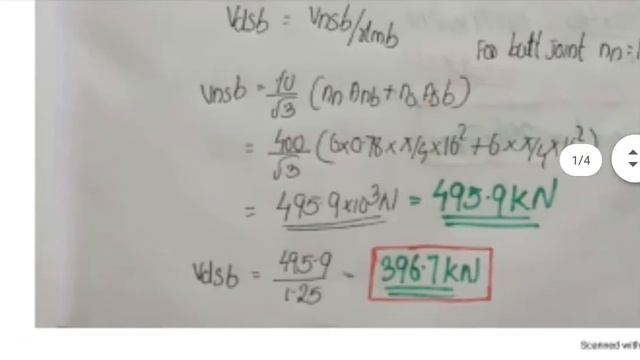 Vdsb = Vnsb/γmb
For butt joint nn=1
Vnsb = fu/√3 (nn Anb + ns Asb)
= 400/√3 (6×0.78×π/4×16² + 6×π/4×16²)
= 495.9×10³N = 495.9KN
Vdsb = 495.9/1.25 - 396.7KN
1/4
Scanned with